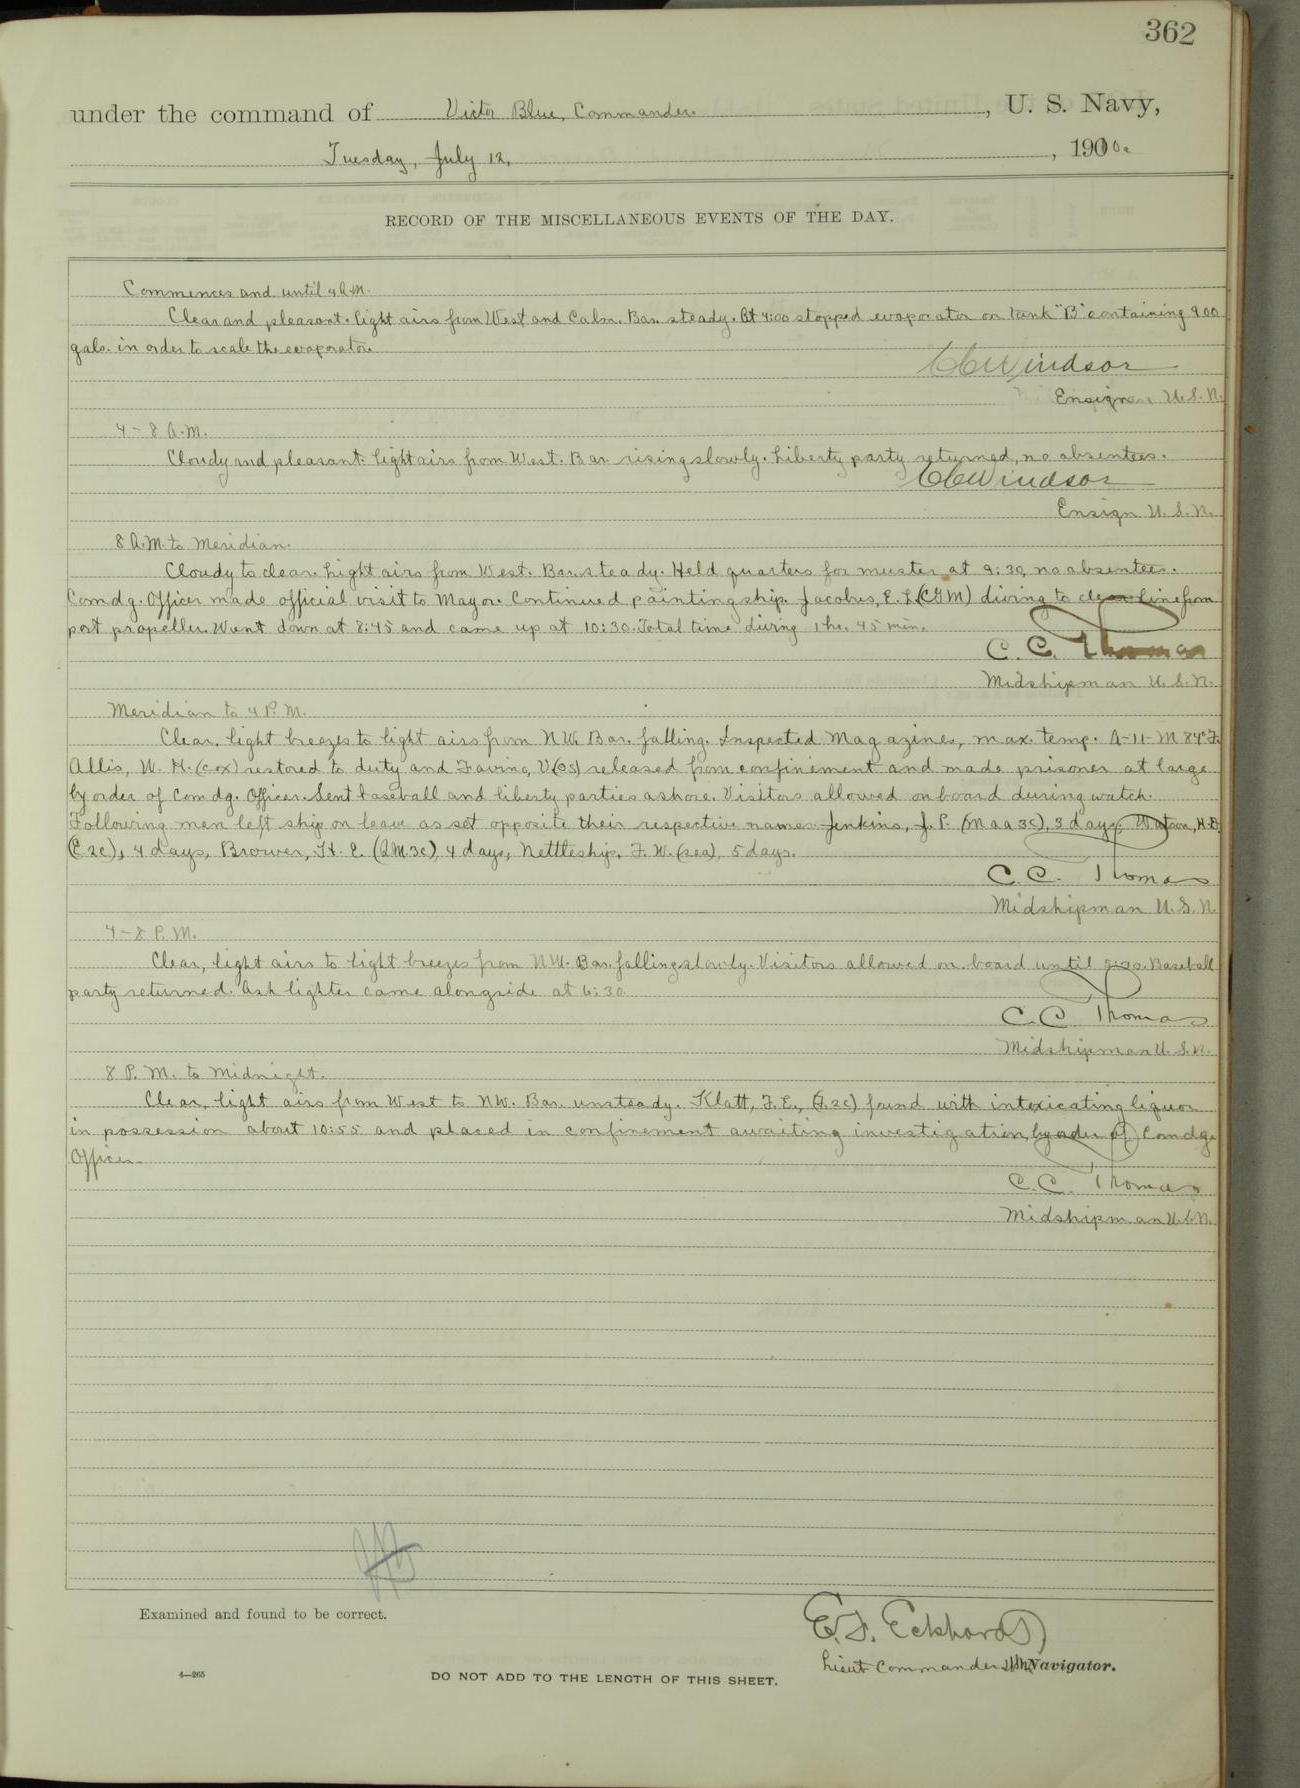 362
under the command of Victor Blue, Commander, U. S. Navy,
Tuesday, July 12, 1910.
RECORD OF THE MISCELLANEOUS EVENTS OF THE DAY.
Commences and until 4 A.M.
Clear and pleasant. light airs from West and Calm. Bar. steady. At 4:00 stopped evaporator on tank "B" containing 900
gals. in order to scale the evaporator.
CC Windsor
Ensign U.S.N.
4-8 A.M.
Cloudy and pleasant. light airs from West. Bar. rising slowly. Liberty party returned, no absentees.
CC Windsor
Ensign U.S.N.
8 A.M. to Meridian.
Cloudy to clear. Light airs from West. Bar. steady. Held quarters for muster at 9:30, no absentees.
Comdg. Officer made official visit to Mayor. Continued painting ship. Jacobus, E. L. (CGM) diving to clear line from
port propeller. Went down at 8:45 and came up at 10:30. Total time diving 1 hr. 45 min.
C. C. Thomas
Midshipman U.S.N.
Meridian to 4 P.M.
Clear, light breezes to light airs from NW. Bar. falling. Inspected Magazines, max. temp. A-11-M 84° F.
Allis, W. H. (cox) restored to duty and Favino, V. (OS) released from confinement and made prisoner at large
by order of Comdg. Officer. Sent baseball and liberty parties ashore. Visitors allowed on board during watch.
Following men left ship on leave as set opposite their respective names. Jenkins, J. P. (Maa3c), 3 days, Watson, H.D.
(E2c), 4 days, Brower, H. E. (QM3c), 4 days, Nettleship, F. W. (sea), 5 days.
C. C. Thomas
Midshipman U.S.N.
4-8 P.M.
Clear, light airs to light breezes from NW. Bar. falling slowly. Visitors allowed on board until 5:30. Baseball
party returned. Ash lighter came alongside at 6:30.
C. C. Thomas
Midshipman U.S.N.
8 P.M. to Midnight.
Clear, light airs from West to NW. Bar. unsteady. Klatt, F. E., (F.2c) found with intoxicating liquor
in possession about 10:55 and placed in confinement awaiting investigation, by order of Comdg.
Officer.
C. C. Thomas
Midshipman U.S.N.
Examined and found to be correct.
E. F. Eckhardt
Lieut Commander USN Navigator.
4—265
DO NOT ADD TO THE LENGTH OF THIS SHEET.